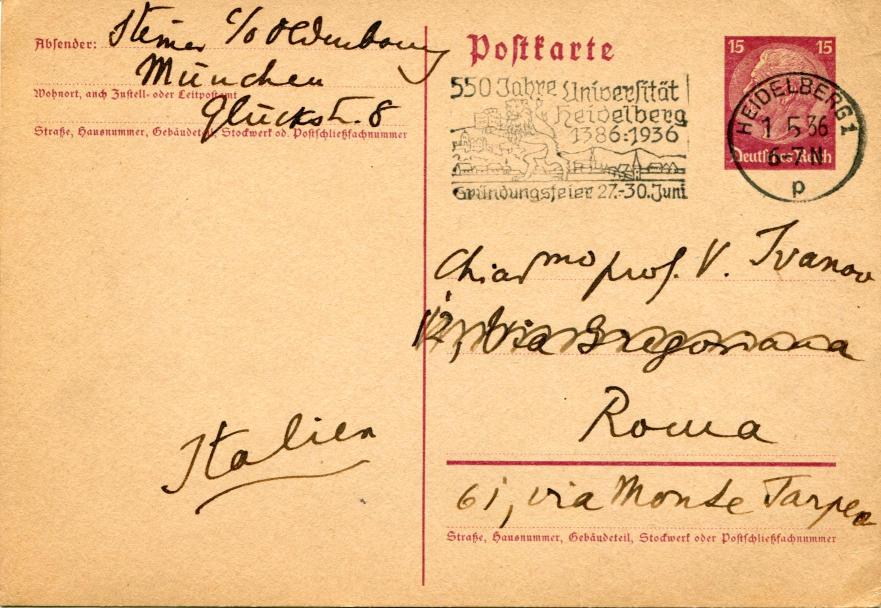 Absender: Steiner c/o Oldenbourg
München
Wohnort, auch Zustell- oder Leitpostamt
Glückstr. 8
Straße, Hausnummer, Gebäudeteil, Stockwerk od. Postschließfachnummer
Postkarte
550 Jahre Universität
Heidelberg
1386-1936
Gründungsfeier 27.-30. Juni
15 15
Deutsches Reich
HEIDELBERG 1
1 5 36
6-7 N
p
Chiarmo prof. V. Ivanov
12, Via Gregoriana
Roma
Italien
61, via Monte Tarpeo
Straße, Hausnummer, Gebäudeteil, Stockwerk oder Postschließfachnummer